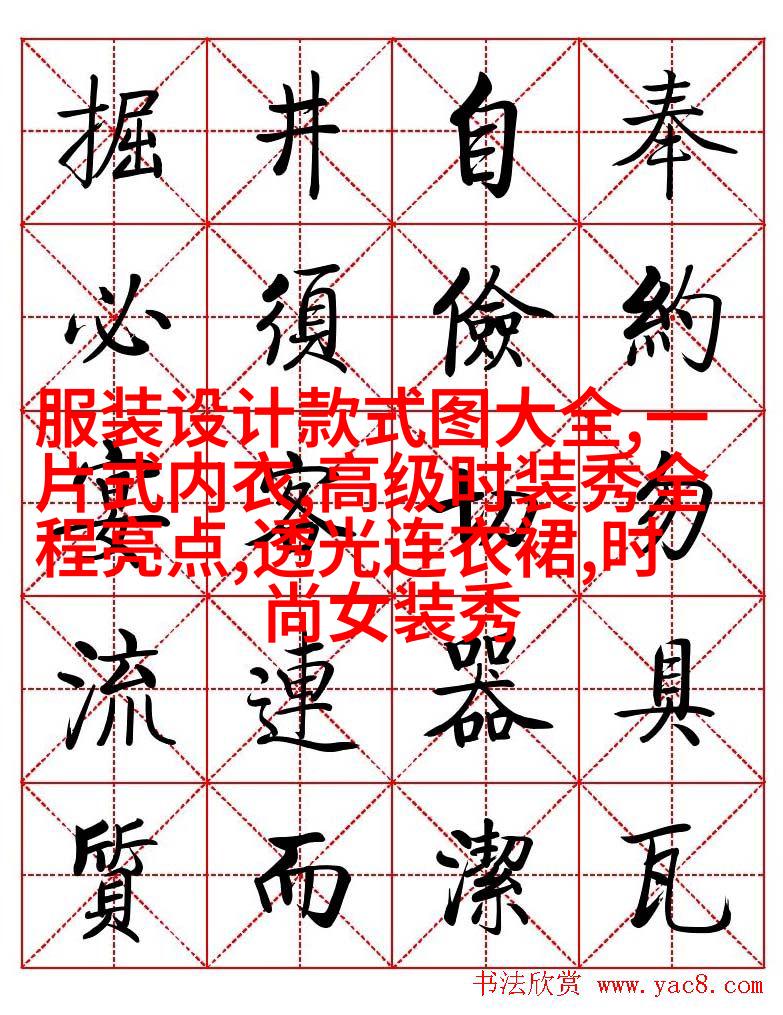 掘井自奉
必須儉約
宴客切勿
流連器具
質而潔瓦
服装设计款式图大全,一
片式内衣,高级时装秀全
程亮点,透光连衣裙,时
尚女装秀
书法欣赏 www.yac8.com